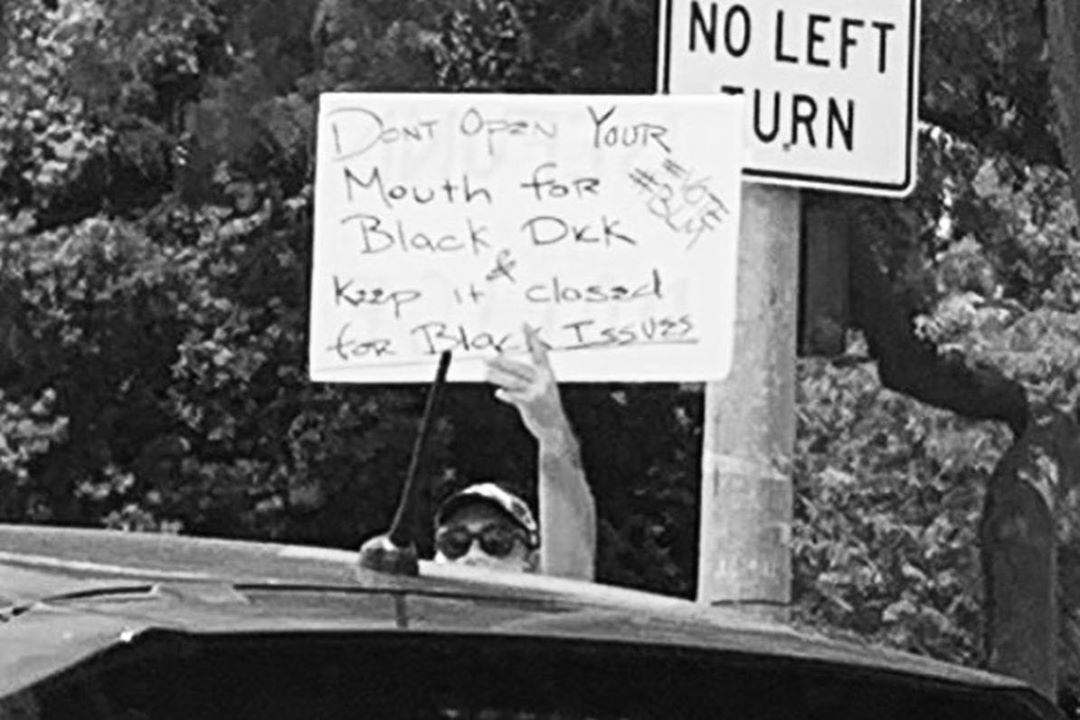 NO LEFT
TURN
DONT OPEN YOUR
Mouth for
Black Dick
&
Keep it closed
for Black Issues
#VOTE
BLUE